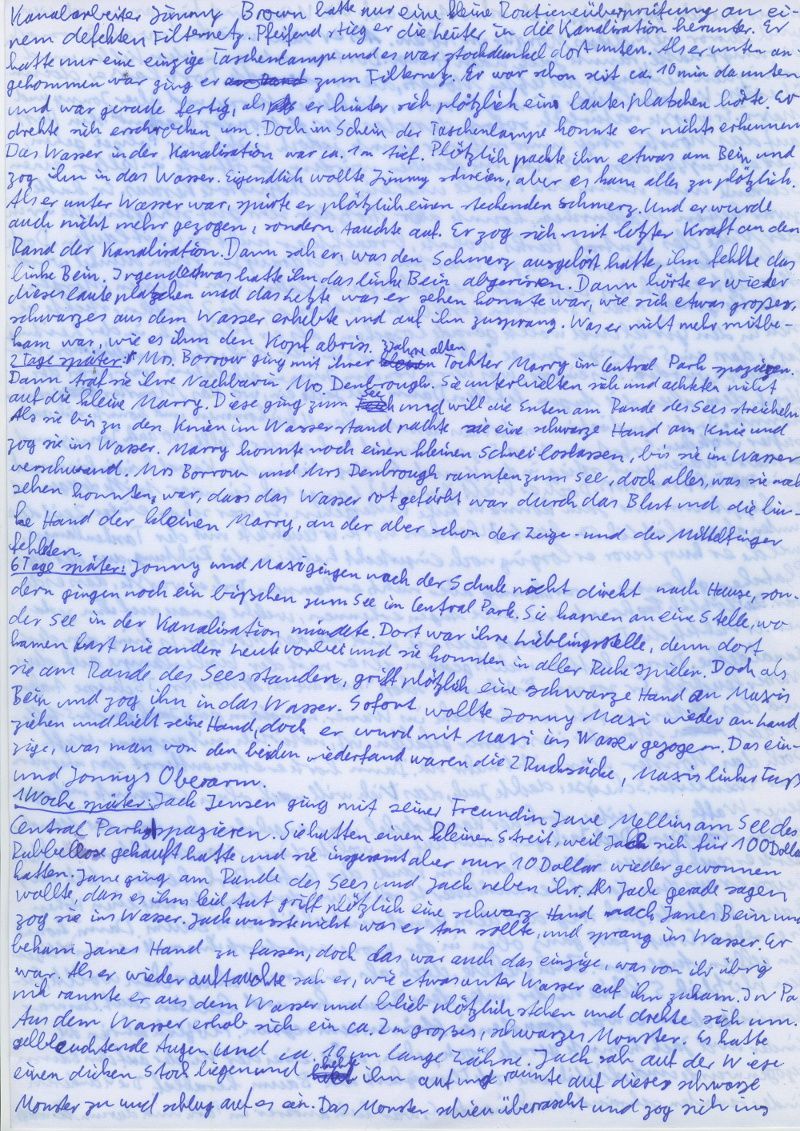 Kanalarbeiter Jimmy Brown hatte nur eine kleine Routineüberprüfung an ei-
nem defekten Filternetz. Pfeifend stieg er die leiter in die Kanalisation herunter. Er
hatte nur eine einzige Taschenlampe und es war stockdunkel dort unten. Als er unten an-
gekommen war ging er zum Filternetz. Er war schon seit ca. 10 min da unten
und war gerade fertig, als er hinter sich plötzlich ein lautes platschen hörte. Er
drehte sich erschrocken um. Doch im Schein der Taschenlampe konnte er nichts erkennen
Das Wasser in der Kanalisation war ca. 1m tief. Plötzlich packte ihn etwas am Bein und
zog ihn in das Wasser. Eigendlich wollte Jimmy schreien, aber es kam alles zu plötzlich.
Als er unter Wasser war, spürte er plötzlich einen stechenden schmerz. Und er wurde
auch nicht mehr gezogen, sondern tauchte auf. Er zog sich mit letzter Kraft an den
Rand der Kanalisation. Dann sah er, was den Schmerz ausgelöst hatte, ihm fehlte das
linke Bein. Irgendetwas hatte ihm das linke Bein abgerissen. Dann hörte er wieder
dieses laute platschen und das letzte was er sehen konnte war, wie sich etwas großes,
schwarzes aus dem Wasser erhebte und auf ihn zusprang. Was er nicht mehr mitbe-
kam war, wie es ihm den Kopf abriss.
2 Tage später: Mrs. Borrow ging mit ihrer 2 Jahre alten Tochter Marry im Central Park spazieren.
Dann traf sie ihre Nachbarin Mrs Denbrough. Sie unterhielten sich und achteten nicht
auf die kleine Marry. Diese ging zum See und will die Enten am Rande des Sees streicheln
Als sie bis zu den Knien im Wasser stand packte sie eine schwarze Hand am Knie und
zog sie ins Wasser. Marry konnte noch einen kleinen Schrei loslassen, bis sie im Wasser
verschwand. Mrs Borrow und Mrs Denbrough rannten zum See, doch alles, was sie noch
sehen konnten, war, dass das Wasser rot gefärbt war durch das Blut und die lin-
ke Hand der kleinen Marry, an der aber schon der Zeige- und der Mittelfinger
fehlten.
6 Tage später: Jonny und Maxi gingen nach der Schule nicht direkt nach Hause, son-
dern gingen noch ein bißchen zum See im Central Park. Sie kamen an eine Stelle, wo
der See in der Kanalisation mündete. Dort war ihre Lieblingsstelle, denn dort
kamen fast nie andere leute vorbei und sie konnten in aller Ruhe spielen. Doch als
sie am Rande des Sees standen, griff plötzlich eine schwarze Hand an Maxis
Bein und zog ihn in das Wasser. Sofort wollte Jonny Maxi wieder an Land
ziehen und hielt seine Hand, doch er wurd mit Maxi ins Wasser gezogen. Das ein-
zige, was man von den beiden wiederfand waren die 2 Rucksäcke, Maxis linker Fuß
und Jonnys Oberarm.
1 Woche später: Jack Jensen ging mit seiner Freundin Jane Mellins am See des
Central Parks spazieren. Sie hatten einen kleinen Streit, weil Jack sich für 100 Dollar
Rubbellose gekauft hatte und sie insgesamt aber nur 10 Dollar wieder gewonnen
hatten. Jane ging am Rande des Sees und Jack neben ihr. Als Jack gerade sagen
wollte, dass es ihm leid tut griff plötzlich eine schwarz Hand nach Janes Bein und
zog sie ins Wasser. Jack wusste nicht was er tun sollte, und sprang ins Wasser. Er
bekam Janes Hand zu fassen, doch das war auch das einzige, was von ihr übrig
war. Als er wieder auftauchte sah er, wie etwas unter Wasser auf ihn zukam. In Pa-
nik rannte er aus dem Wasser und blieb plötzlich stehen und drehte sich um.
Aus dem Wasser erhob sich ein ca. 2m großes, schwarzes Monster. Es hatte
gelbleuchtende Augen und ca. 10 cm lange Zähne. Jack sah auf der Wiese
einen dicken Stock liegen und ihn auf und rannte auf dieses schwarze
Monster zu und schlug auf es ein. Das Monster schien überrascht und zog sich ins